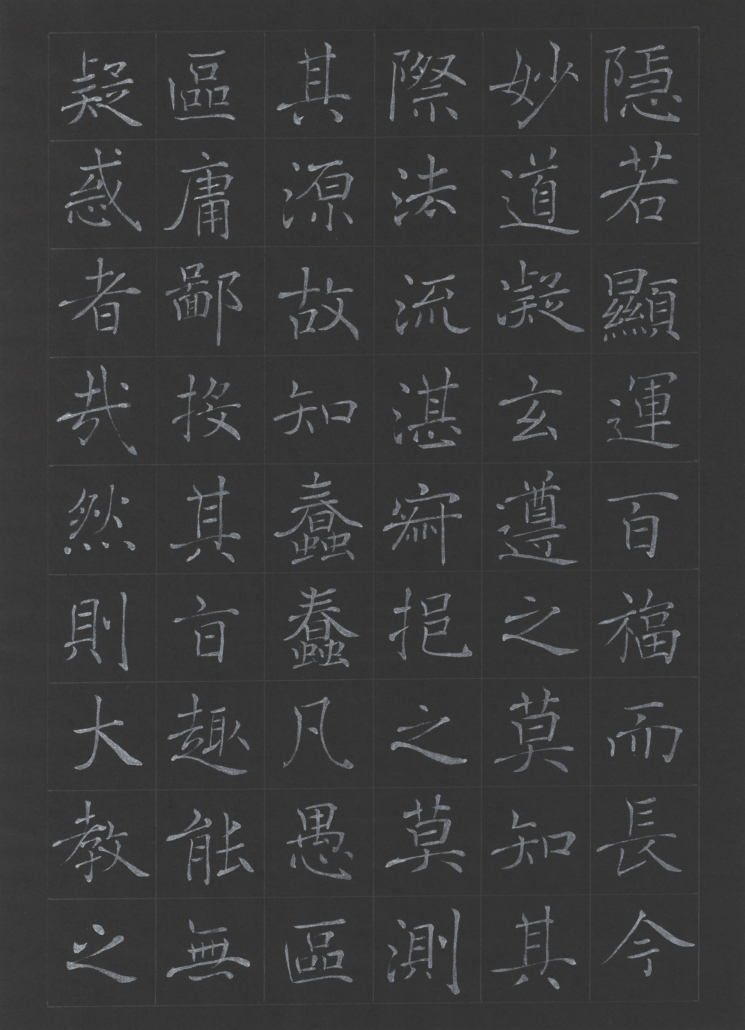 隱若顯運百福而長今
妙道凝玄遵之莫知其
際法流湛寂挹之莫測
其源故知蠢蠢凡愚區
區庸鄙投其旨趣能無
疑惑者哉然則大教之